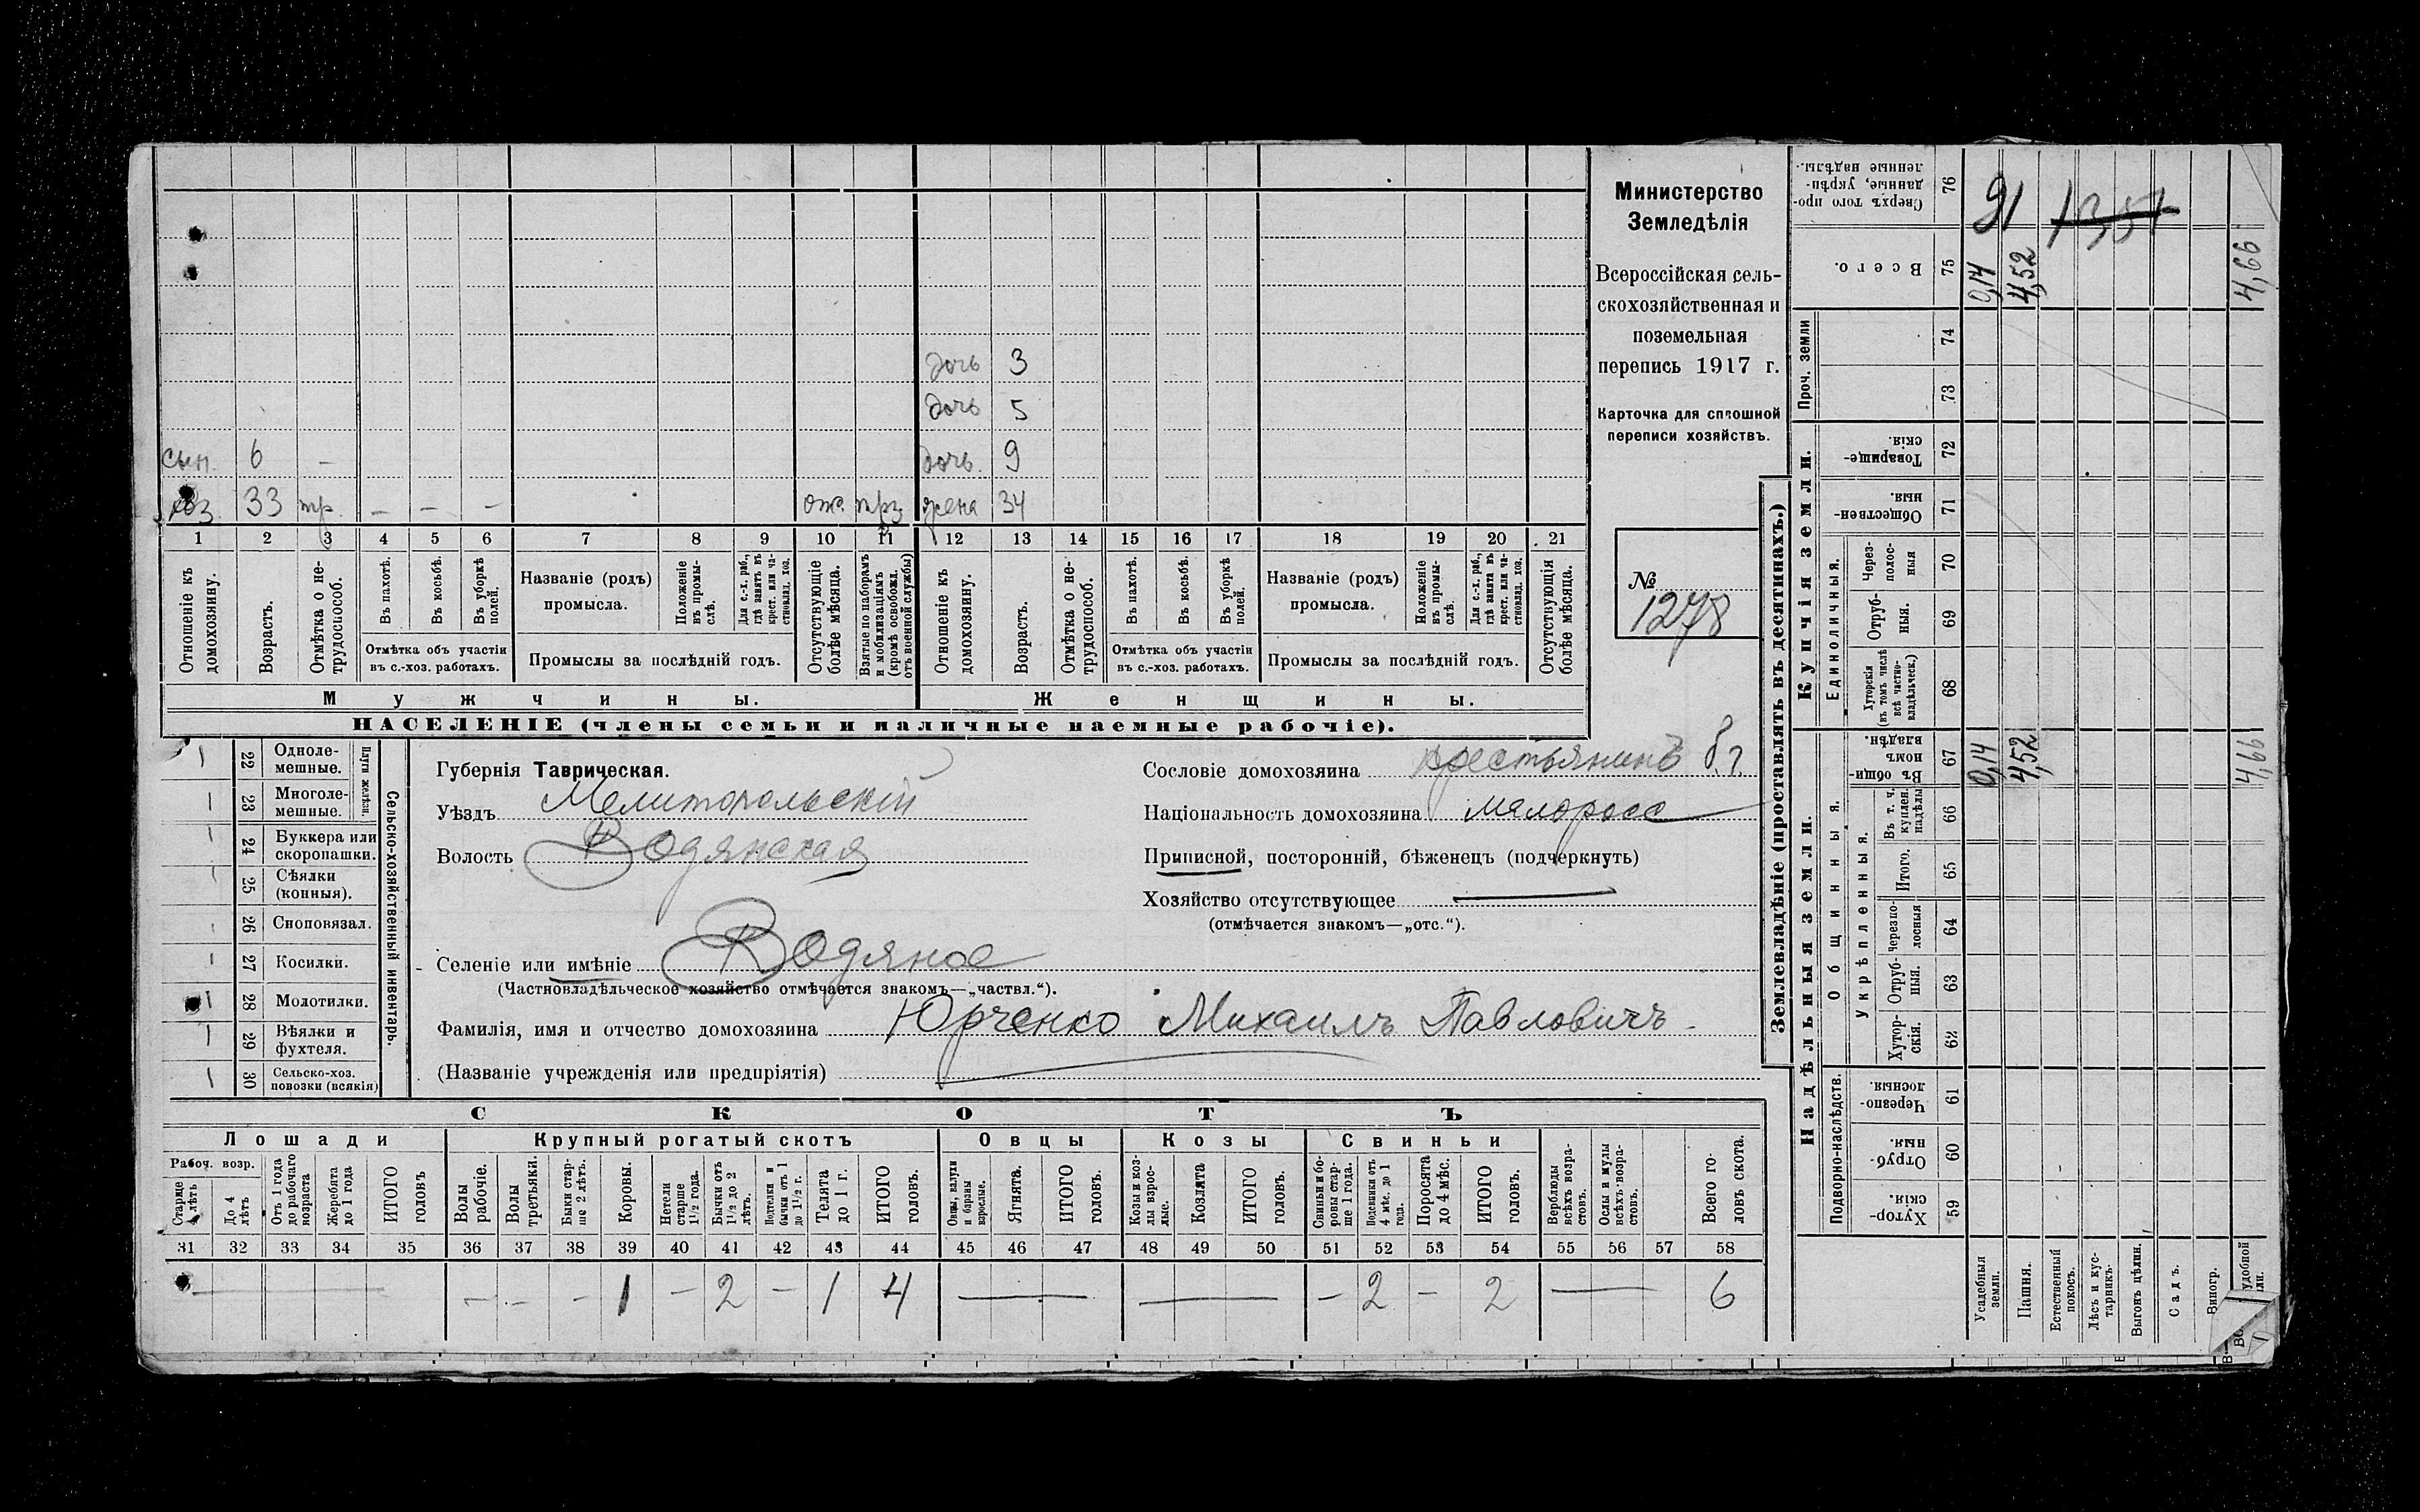 дочь 3
дочь 5
сын. 6 – дочь. 9
хоз. 33 тр. – – – отс. прз жена 34
1 2 3 4 5 6 7 8 9 10 11 12 13 14 15 16 17 18 19 20 21
Отношеніе къ домохозяину.
Возрастъ.
Отмѣтка о не-
трудоспособ.
Въ пахотѣ.
Въ косьбѣ.
Въ уборкѣ полей.
Отмѣтка объ участіи
въ с.-хоз. работахъ.
Названіе (родъ)
промысла.
Положеніе въ промы-
слѣ.
Для с.-х. раб., гдѣ занятъ въ крест. или ча-
стновлад. хоз.
Промыслы за послѣдній годъ.
Отсутствующіе болѣе мѣсяца.
Взятые по наборамъ и мобилизаціямъ (кромѣ освобожд. отъ военной службы)
Отношеніе къ домохозяину.
Возрастъ.
Отмѣтка о не-
трудоспособ.
Въ пахотѣ.
Въ косьбѣ.
Въ уборкѣ полей.
Отмѣтка объ участіи
въ с.-хоз. работахъ.
Названіе (родъ)
промысла.
Положеніе въ промы-
слѣ.
Для с.-х. раб., гдѣ занята въ крест. или ча-
стновлад. хоз.
Промыслы за послѣдній годъ.
Отсутствующія болѣе мѣсяца.
Мужчины. Женщины.
НАСЕЛЕНІЕ (члены семьи и наличные наемные рабочіе).
Министерство
Земледѣлія
Всероссійская сель-
скохозяйственная и
поземельная
перепись 1917 г.
Карточка для сплошной
переписи хозяйствъ.
№
1278
22 Одноле-
мешные.
23 Многоле-
мешные.
Плуги желѣзн.
24 Буккера или
скоропашки.
25 Сѣялки
(конныя).
26 Сноповязал.
27 Косилки.
28 Молотилки.
29 Вѣялки и
фухтеля.
30 Сельско-хоз.
повозки (всякія)
Сельско-хозяйственный инвентарь.
Губернія Таврическая.
Уѣздъ Мелитопольскій
Волость Водянская
Селеніе или имѣніе Водяное
(Частновладѣльческое хозяйство отмѣчается знакомъ—„частвл.“).
Фамилія, имя и отчество домохозяина Юрченко Михаилъ Павловичъ
(Названіе учрежденія или предпріятія)
Сословіе домохозяина крестьянинъ
Національность домохозяина малоросс
Приписной, посторонній, бѣженецъ (подчеркнуть)
Хозяйство отсутствующее
(отмѣчается знакомъ—„отс.“).
СКОТЪ
Лошади Крупный рогатый скотъ Овцы Козы Свиньи
Рабоч. возр.
Старше 4 лѣтъ
До 4 лѣтъ
Отъ 1 года до рабочаго возраста
Жеребята до 1 года
ИТОГО головъ
Волы рабочіе.
Волы третьяки.
Быки стар-
ше 2 лѣтъ.
Коровы.
Нетели старше 1½ года.
Бычки отъ 1½ до 2 лѣтъ.
Подтелки и бычки отъ 1 до 1½ г.
Телята до 1 г.
ИТОГО головъ.
Овцы, валухи и бараны взрослые.
Ягнята.
ИТОГО головъ.
Козы и коз-
лы взрос-
лые.
Козлята
ИТОГО головъ.
Свиньи и бо-
ровы стар-
ше 1 года.
Подсвинки отъ 4 мѣс. до 1 года.
Поросята до 4 мѣс.
ИТОГО головъ.
Верблюды всѣхъ возра-
стовъ.
Ослы и мулы всѣхъ возра-
стовъ.
Всего го-
ловъ скота.
31 32 33 34 35 36 37 38 39 40 41 42 43 44 45 46 47 48 49 50 51 52 53 54 55 56 57 58
— – – – 1 – 2 – 1 4 — — – 2 – 2 — 6
Землевладѣніе (проставлять въ десятинахъ.)
Купчія земли.
Надѣльныя земли.
Сверхъ того про-
данные, укрѣп-
ленные надѣлы. 76 91 1351
Всего. 75 0,14 4,52 4,66
Проч. земли 74
73
Товарище-
скія. 72
Обществен-
ныя. 71
Единоличныя.
Через-
полос-
ныя 70
Отруб-
ныя. 69
Хуторскія (въ томъ числѣ всѣ частно-
владѣльческ.) 68
Общинныя.
Въ общи-
номъ
владѣн. 67 0,14 4,52 4,66
Укрѣпленныя.
Въ т. ч. куплен. надѣлы 66
Итого. 65
Черезпо-
лосныя 64
Отруб-
ныя. 63
Хутор-
скія. 62
Подворно-наслѣдств.
Черезпо-
лосныя. 61
Отруб-
ныя. 60
Хутор-
скія. 59
Усадебныя земли.
Пашня.
Естественный покосъ.
Лѣсъ и кус-
тарникъ.
Выгонъ цѣлин.
Садъ.
Виногр.
удобной